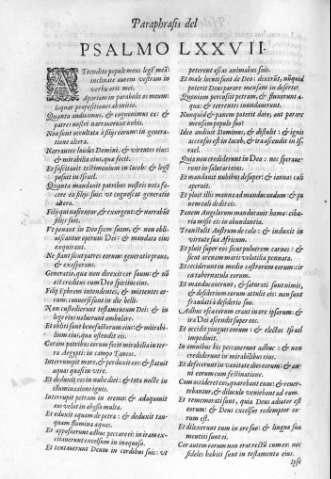 Paraphrasis del
PSALMO LXXVII.
Attendite popule meus legẽ meã
inclinate aurem vestram in
verba oris mei.
Aperiam in parabolis os meum:
loquar propositiones ab initio.
Quanta audiuimus, & cognouimus ea: &
patres nostri narrauerunt nobis.
Non sunt occultata à filijs eorum: in genera
tione altera.
Narrantes laudes Domini, & virtutes eius:
& mirabilia eius, quæ fecit.
Et suscitauit testimonium in Iacob: & legẽ
posuit in Israel.
Quanta mandauit patribus nostris nota fa-
cere ea filijs suis: vt cognoscat generatio
altera.
Filij qui nascentur, & exurgent: & narrabũt
filijs suis.
Vt ponant in Deo spem suam, & non obli-
uiscantur operum Dei: & mandata eius
exquirant.
Ne fiant sicut patres eorum: generatio praua,
& exasperans.
Generatio, quæ non direxit cor suum: & nõ
est creditus cum Deo spiritus eius.
Filij Ephrem intendentes, & mittentes ar-
cum: conuersi sunt in die belli.
Non custodierunt testamentum Dei: & in
lege eius noluerunt ambulare.
Et obliti sunt benefactorum eius: & mirabi-
lium eius, quæ ostendit eis.
Coram patribus eorum fecit mirabilia in ter-
ra Aegypti: in campo Taneos.
Interrupit mare, & perduxit eos: & statuit
aquas quasi in vtre.
Et deduxit eos in nube diei: & tota nocte in
illuminatione ignis.
Interrupit petram in eremo: & adaquauit
eos velut in abysso multa.
Et eduxit aquam de petra: & deduxit tan-
quam flumina aquas.
Et apposuerunt adhuc peccare ei: in iram ex-
citauerunt excelsum in inaquoso.
Et tentauerunt Deum in cordibus suis: vt
peterent escas animabus suis.
Et male locuti sunt de Deo: dixerũt, nũquid
poterit Deus parare mensam in deserto?
Quoniam percussit petram, & fluxerunt a-
quæ: & torrentes inundauerunt.
Nunquid & panem poterit dare, aut parare
mensam populo suo?
Ideo audiuit Dominus, & distulit: & ignis
accensus est in Iacob, & ira ascendit in Is-
rael.
Quia non crediderunt in Deo: nec speraue-
runt in salutari eius.
Et mandauit nubibus desuper: & ianuas cæli
aperuit.
Et pluit illis manna ad manducandum: & pa
nem cæli dedit eis.
Panem Angelorum manducauit homo: ciba-
ria misit eis in abundantia.
Transtulit Austrum de cælo: & induxit in
virtute sua Africum.
Et pluit super eos sicut puluerem carnes: &
sicut arenam maris volatilia pennata.
Et ceciderunt in medio castrorum eorum: cir
ca tabernacula eorum.
Et manducauerunt, & saturati sunt nimis,
& desiderium eorum attulit eis: non sunt
fraudati à desiderio suo.
Adhuc escæ eorum erant in ore ipsorum: &
ira Dei ascendit super eos.
Et occidit pingues eorum: & electos Israel
impediuit.
In omnibus his peccauerunt adhuc: & non
crediderunt in mirabilibus eius.
Et defecerunt in vanitate dies eorum: & an-
ni eorum cum festinatione.
Cum occideret eos, quærebant eum: & reuer-
tebantur, & diluculo veniebant ad eum.
Et rememorati sunt, quia Deus adiutor est
eorum: & Deus excelsus redemptor eo-
rum est.
Et dilexerunt eum in ore suo: & lingua sua
mentiti sunt ei.
Cor autem eorum non erat rectũ cum eo: nec
fideles habiti sunt in testamento eius.
Ipse